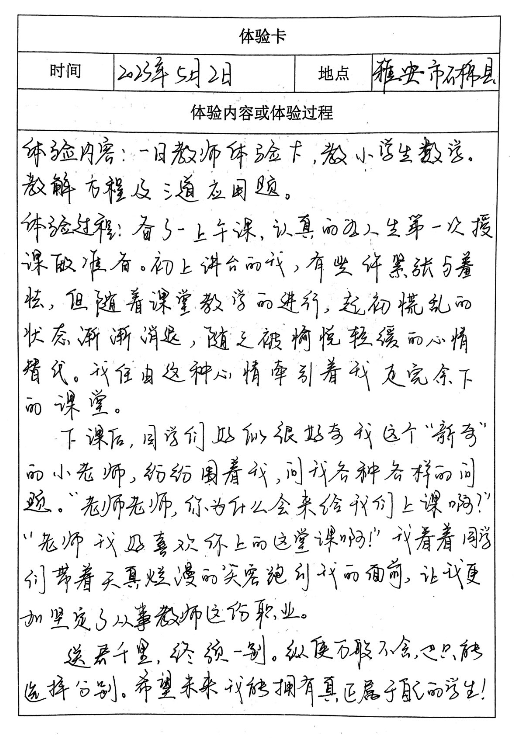 体验卡
时间 2023年5月2日 地点 雅安市石棉县
体验内容或体验过程
体验内容：一日教师体验卡，教小学生数学。
教解方程及三道应用题。
体验过程：备了一上午课，认真的为人生第一次授
课做准备。初上讲台的我，有些许紧张与羞
怯，但随着课堂教学的进行，起初慌乱的
状态渐渐消退，随之被愉悦轻缓的心情
替代。我任由这种心情牵引着我上完余下
的课堂。
下课后，同学们好似很好奇我这个“新奇”
的小老师，纷纷围着我，问我各种各样的问
题。“老师老师，你为什么会来给我们上课啊？”
“老师我好喜欢你上的这堂课啊！”我看着同学
们带着天真烂漫的笑容跑到我的面前，让我更
加坚定了从事教师这份职业。
送君千里，终须一别。纵使万般不舍，也只能
选择分别。希望未来我能拥有真正属于自己的学生！